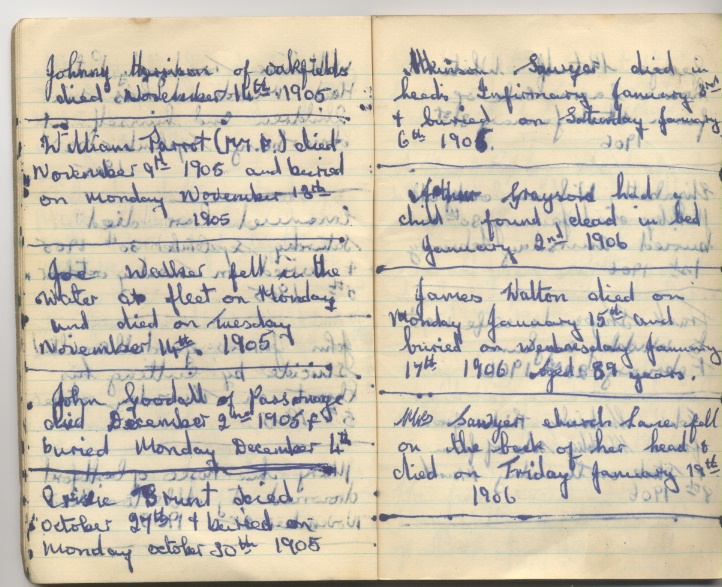 Johnny Harrison of oakfields
died November 14th 1905
William Parrot (Mr.) died
November 9th 1905 and buried
on Monday November 13th
1905
Joe Walker fell in the
water at fleet on Monday
and died on Tuesday
November 14th 1905
John Goodall of Parsonage
died December 2nd 1905 &
buried Monday December 4th
Brunt deied
october 27th & buried on
Monday october 30th 1905
Atkinson Sawyer died in
heeds Infirmary January 3rd
& buried on Saturday January
6th 1906.
Graysoid had a
child found dead in bed
January 2nd 1906
James Walton died on
Monday January 15th and
buried on Wednesday January
17th 1906 aged 89 years.
Mrs Sawyer church Lane fell
on the back of her head &
died on Friday January 19th
1906